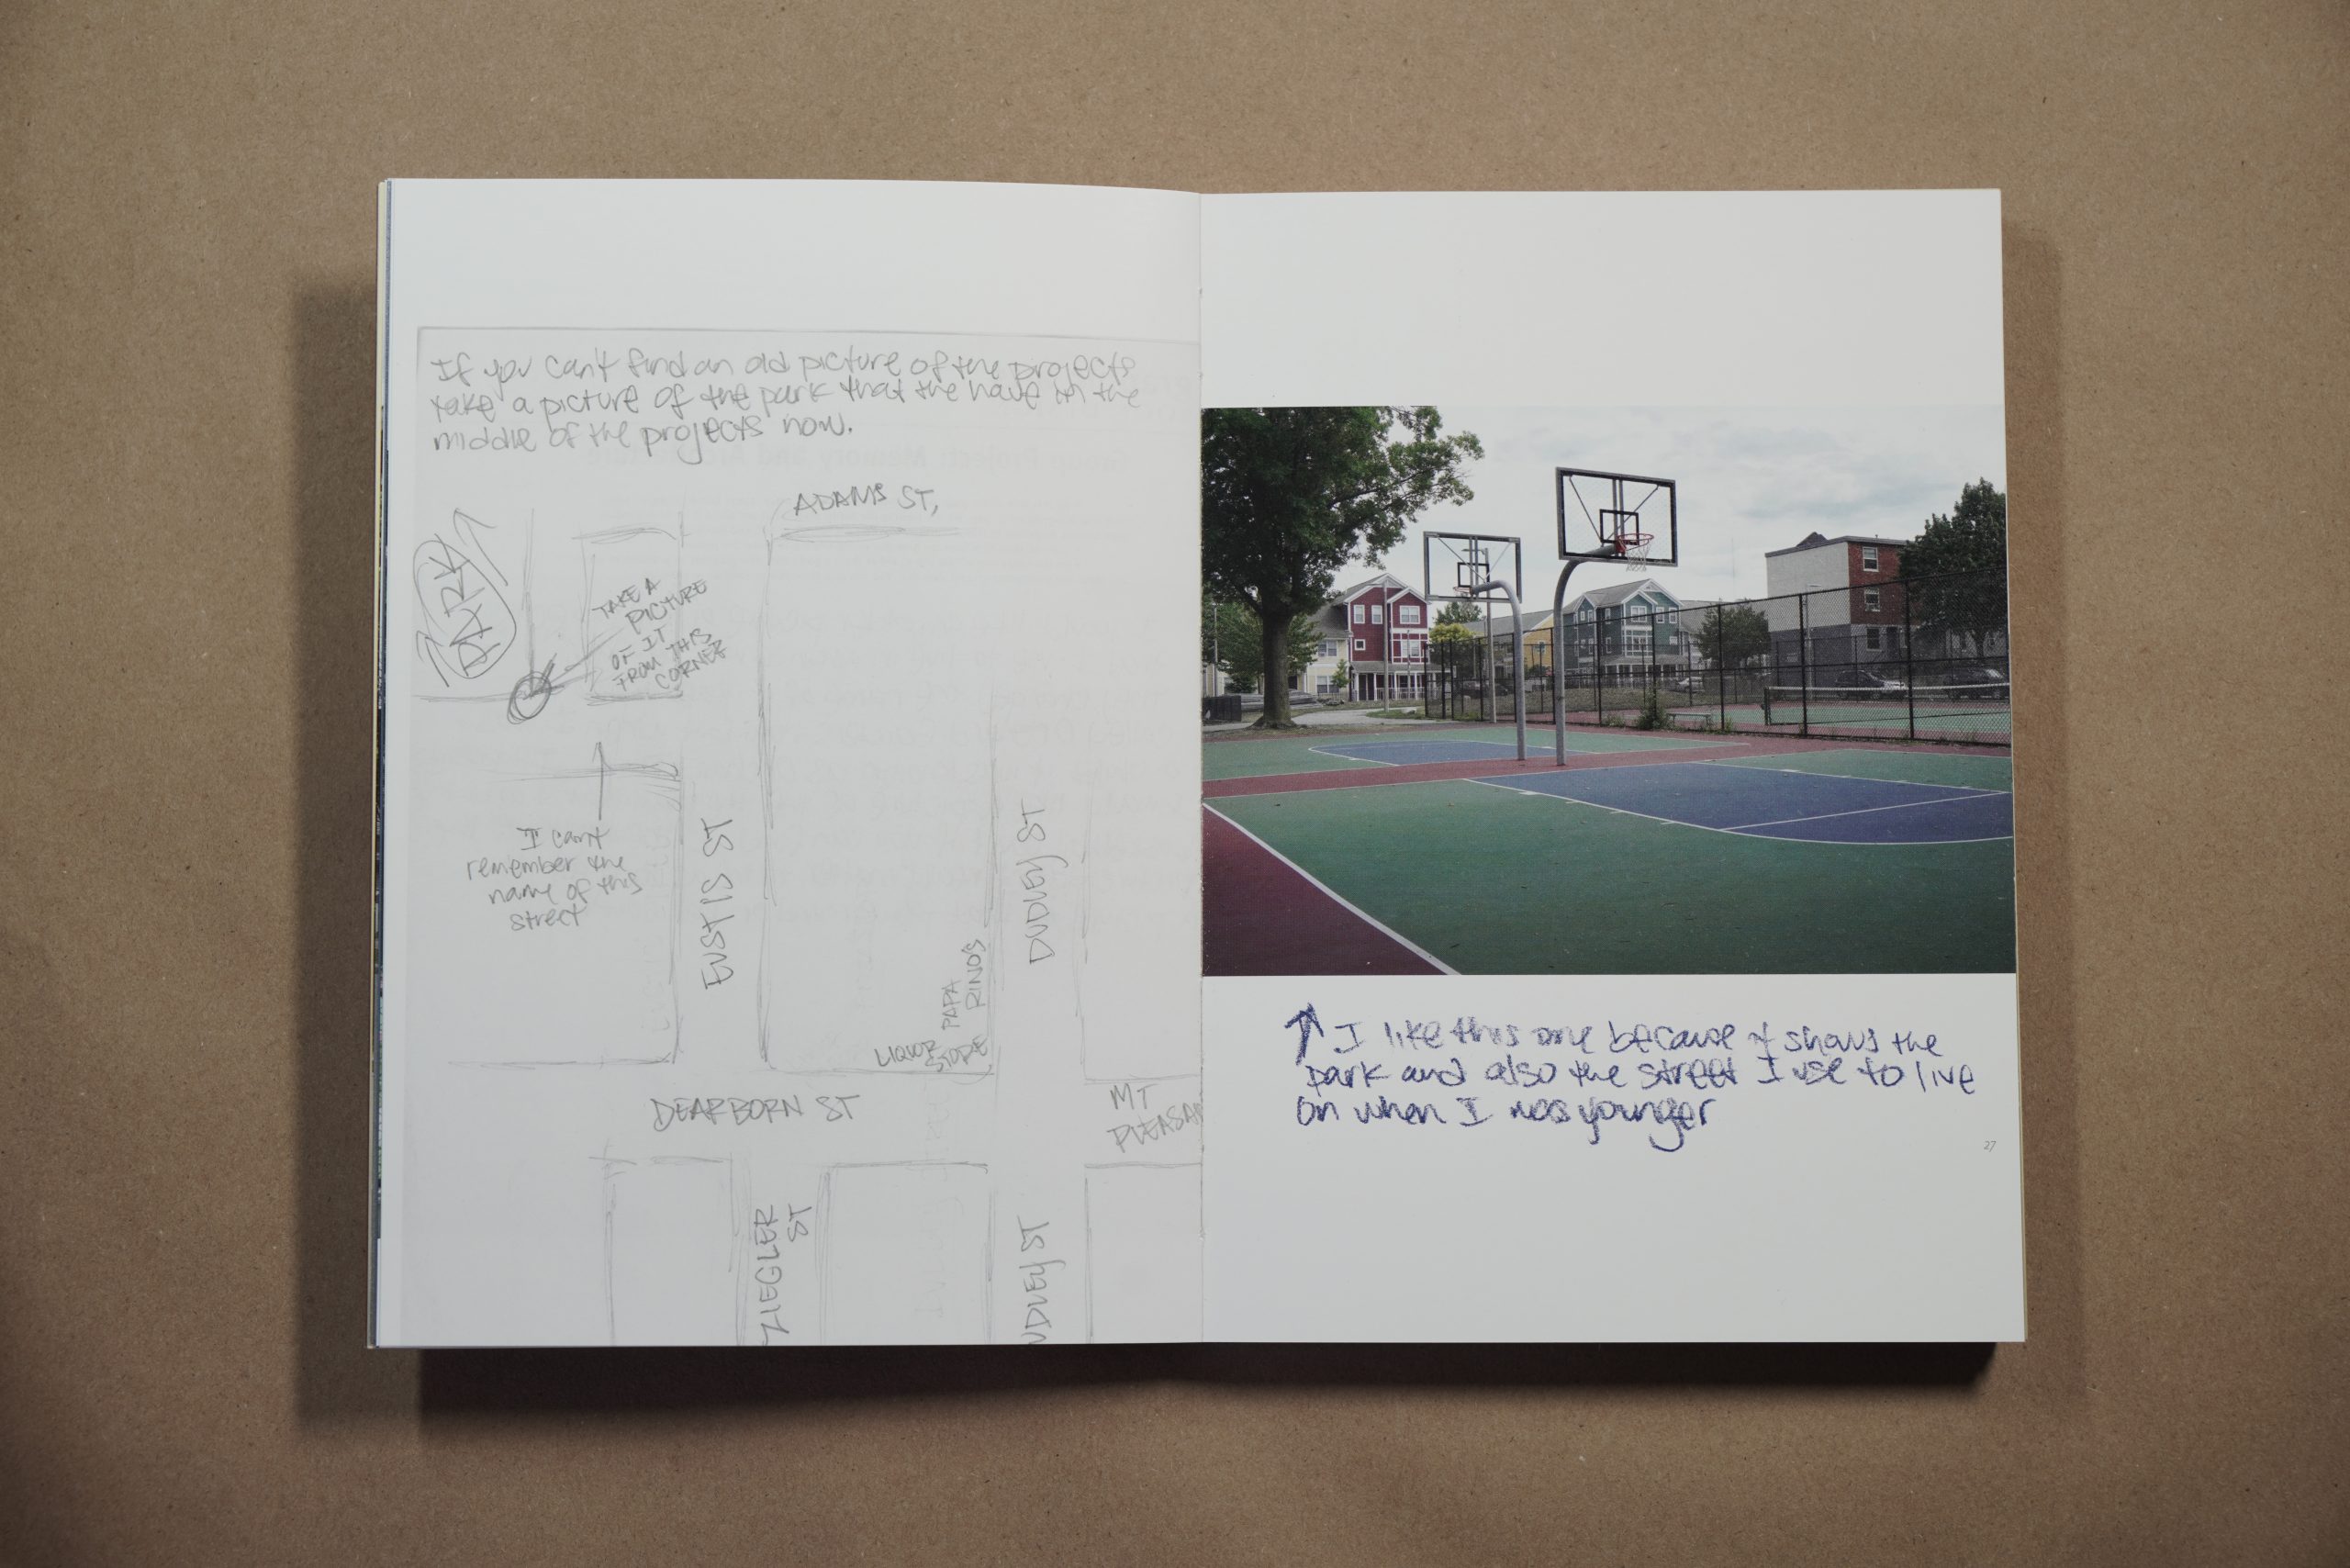 If you can't find an old picture of the projects
take a picture of the park that the have in the
middle of the projects now.
ADAMS ST,
PARK
TAKE A
PICTURE
OF IT
FROM THIS
CORNER
I can't
remember the
name of this
street
EUSTIS ST
DUDLEY ST
PAPA
RINO'S
LIQUOR
STORE
DEARBORN ST
MT
PLEASA
ZIEGLER
ST
UDLEY ST
I like this one because it shows the
park and also the street I use to live
on when I was younger
27